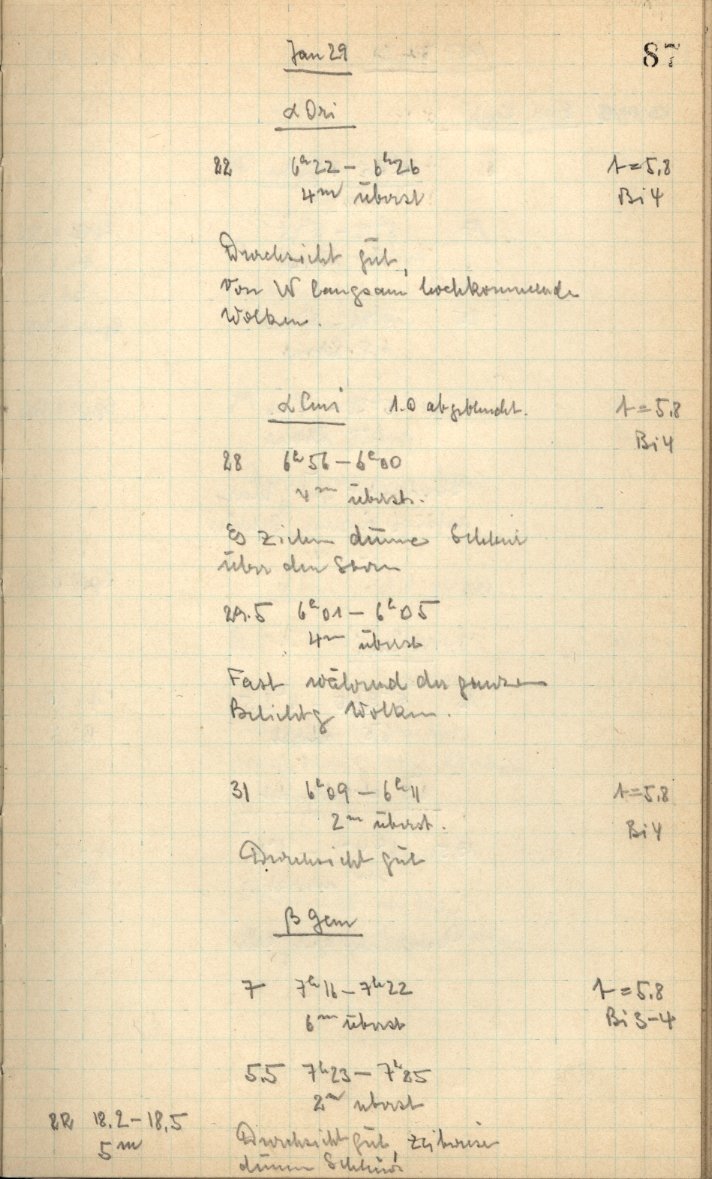 Jan 29
87
α Ori
22 6h22 – 6h26 t = 5,8
4m überst Bi 4
Durchsicht gut,
von W langsam hochkommende
Wolken.
α Cmi 1.0 abgeblendet. t = 5,8
Bi 4
28 6h56 – 6h00
4m überst.
Es ziehen dünne
über den Stern
29.5 6h01 – 6h05
4m überst
Fast während der ganzen
Belichtg Wolken.
31 6h09 – 6h11 t = 5,8
2m überst. Bi 4
Durchsicht gut
β Gem
7 7h16 – 7h22 t = 5,8
6m überst Bi 3-4
5,5 7h23 – 7h25
2m überst
22 18,2 – 18,5
5m
Durchsicht gut, zeitweise
dünne